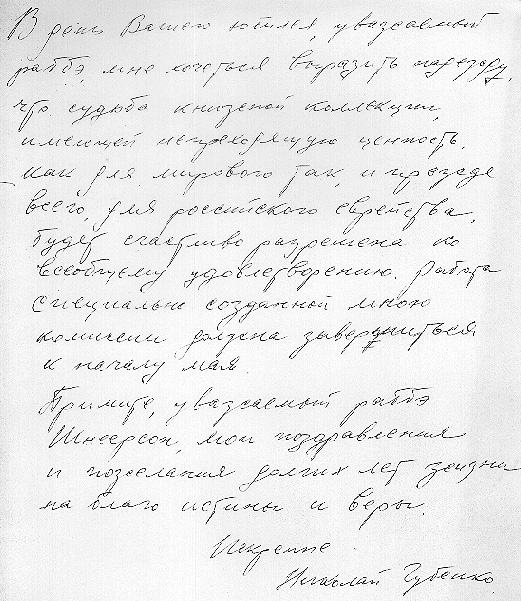 В день Вашего юбилея, уважаемый
раббэ, мне хочеться выразить надежду,
что судьба книжной коллекции,
имеющей непреходящую ценность,
как для мирового так, и прежде
всего, для российского еврейства,
будет счастливо разрешена ко
всеобщему удовлетворению. Работа
специально созданной мною
комиссии должна завершиться
к началу мая.
Примите, уважаемый раббэ
Шнеерсон, мои поздравления
и пожелания долгих лет жизни
на благо истины и веры.
Искренне
Николай Губенко